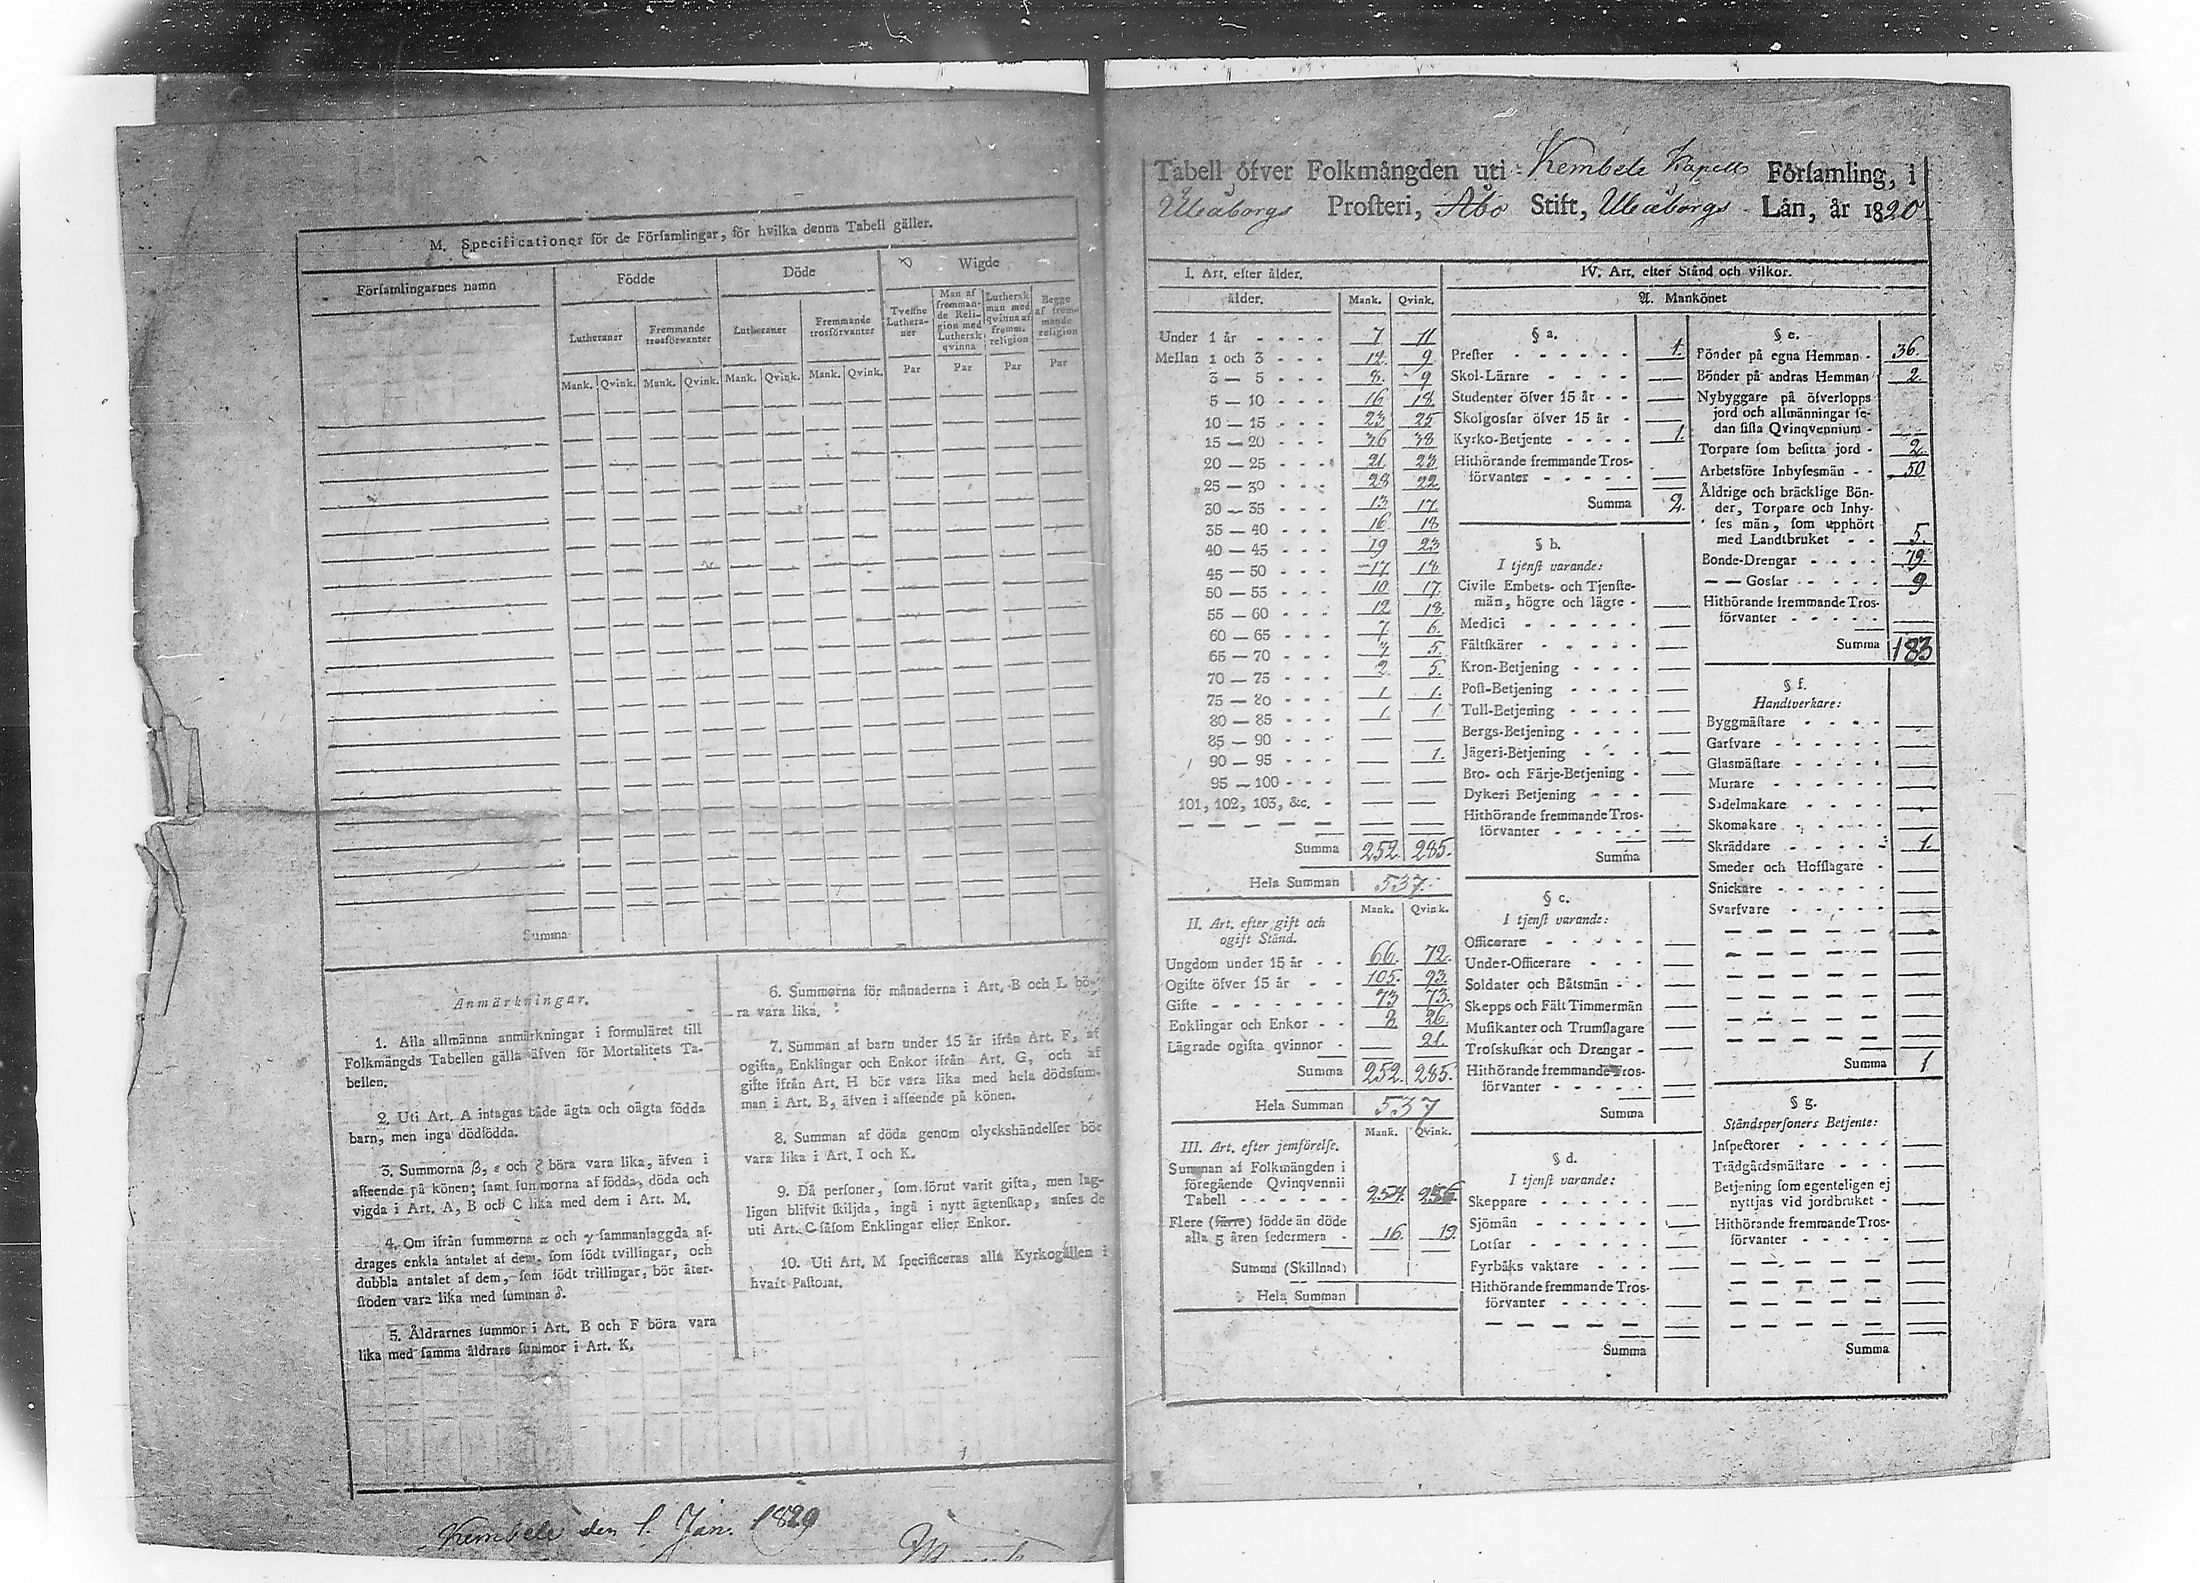 M. Specificationer för de Församlingar, för hvilka denna Tabell gäller.
Församlingarnes namn
Födde
Döde
Wigde
Lutheraner
Fremmande trosförvanter
Lutheraner
Fremmande trosförvanter
Tvenne Lutheraner
Man af fremmande Religion med Luthersk qvinna
Luthersk man med qvinna af fremm. religion
Begge af fremmande religion
Mank. Qvink. Mank. Qvink. Mank. Qvink. Mank. Qvink. Par Par Par Par
Summa
Anmärkningar.
1. Alla allmänna anmärkningar i formuläret till
Folkmängds Tabellen gälla äfven för Mortalitets Ta-
bellen.
2. Uti Art. A intagas både ägta och oägta födda
barn, men inga dödfödda.
3. Summorna β, ε och ζ böra vara lika, äfven i
afseende på könen; samt summorna af födda, döda och
vigda i Art. A, B och C lika med dem i Art. M.
4. Om ifrån summorna α och γ sammanlaggda af-
drages enkla antalet af dem, som födt tvillingar, och
dubbla antalet af dem, som födt trillingar, bör åter-
stoden vara lika med summan δ.
5. Åldrarnes summor i Art. B och F böra vara
lika med samma åldrars summor i Art. K.
6. Summorna för månaderna i Art. B och L bö-
ra vara lika.
7. Summan af barn under 15 år ifrån Art. F, af
ogifta, Enklingar och Enkor ifrån Art. G, och af
gifte ifrån Art. H bör vara lika med hela dödssum-
man i Art. B, äfven i afseende på könen.
8. Summan af döda genom olyckshändelser bör
vara lika i Art. I och K.
9. Då personer, som förut varit gifta, men lag-
ligen blifvit skiljda, ingå i nytt ägtenskap, anses de
uti Art. C såsom Enklingar eller Enkor.
10. Uti Art. M specificeras alla Kyrkogällen i
hvart Pastorat.
Kembele den 1. Jan. 1829
Tabell öfver Folkmängden uti Kembele Kapells Församling, i
Uleåborgs Prosteri, Åbo Stift, Uleåborgs Län, år 1820
I. Art. efter ålder.
ålder. Mank. Qvink.
Under 1 år - - - - 7 11
Mellan 1 och 3 - - - 12. 9
3 — 5 - - - 8. 9
5 — 10 - - - 16 18
10 — 15 - - - 23 25
15 — 20 - - - 36 38
20 — 25 - - - 21 23
25 — 30 - - - 28 22
30 — 35 - - - 13 17
35 — 40 - - - 16 18
40 — 45 - - - 19 23
45 — 50 - - - 17 18
50 — 55 - - - 10 17.
55 — 60 - - - 12 18.
60 — 65 - - - 7 6.
65 — 70 - - - 7 5.
70 — 75 - - - 2 5.
75 — 80 - - - 1 1.
80 — 85 - - - 1 1
85 — 90 - - -
90 — 95 - - - 1.
95 — 100 - - -
101, 102, 103, &c. -
Summa 252. 285.
Hela Summan 537.
Mank. Qvink.
II. Art. efter gift och
ogift Stånd.
Ungdom under 15 år - - 66. 72.
Ogifte öfver 15 år - - 105. 93.
Gifte - - - - - - - 73 73.
Enklingar och Enkor - - 8. 26.
Lägrade ogifta qvinnor - 21.
Summa 252. 285.
Hela Summan 537
Mank. Qvink.
III. Art. efter jemförelse.
Summan af Folkmängden i
föregående Qvinqvennii
Tabell - - - - - - 254.
Flere (färre) födde än döde
alla 5 åren federmera - 16. 19.
Summa (Skillnad)
Hela Summan
IV. Art. efter Stånd och vilkor.
A. Mankönet
§ a.
Prester - - - - - - 1.
Skol-Lärare - - - -
Studenter öfver 15 år - -
Skolgossar öfver 15 år -
Kyrko-Betjente - - - - 1
Hithörande fremmande Tros-
förvanter - - - - -
Summa 2.
§ b.
I tjenst varande:
Civile Embets- och Tjenste-
män, högre och lägre -
Medici - - - - - -
Fältskärer - - - - -
Kron-Betjening - - - -
Post-Betjening - - - -
Tull-Betjening - - - -
Bergs-Betjening - - - -
Jägeri-Betjening - - -
Bro- och Färje-Betjening -
Dykeri Betjening - - -
Hithörande fremmande Tros-
förvanter - - - - -
Summa
§ c.
I tjenst varande:
Officerare - - - - -
Under-Officerare - - -
Soldater och Båtsmän - -
Skepps och Fält Timmermän
Musikanter och Trumslagare
Trosskuskar och Drengar -
Hithörande fremmande Tros-
förvanter - - - - -
Summa
§ d.
I tjenst varande:
Skeppare - - - - - -
Sjömän - - - - - -
Lotsar - - - - - -
Fyrbåks vaktare - - -
Hithörande fremmande Tros-
förvanter - - - - -
Summa
§ e.
Bönder på egna Hemman - 36.
Bönder på andras Hemman 2.
Nybyggare på öfverlopps
jord och allmänningar se-
dan sista Qvinqvennium -
Torpare som besitta jord - 2.
Arbetsföre Inhysesmän - - 50
Åldrige och bräcklige Bön-
der, Torpare och Inhy-
ses män, som upphört
med Landtbruket - - 5.
Bonde-Drengar - - - - 79.
— — Gossar - - - - - 9
Hithörande fremmande Tros-
förvanter - - - - -
Summa 183
§ f.
Handtverkare:
Byggmästare - - - -
Garfvare - - - - - -
Glasmästare - - - - -
Murare - - - - - -
Sadelmakare - - - - -
Skomakare - - - - -
Skräddare - - - - - 1.
Smeder och Hofslagare -
Snickare - - - - - -
Svarfvare - - - - -
Summa 1
§ g.
Ståndspersoners Betjente:
Inspectorer - - - - -
Trädgårdsmästare - - -
Betjening som egenteligen ej
nyttjas vid jordbruket -
Hithörande fremmande Tros-
förvanter - - - - -
Summa